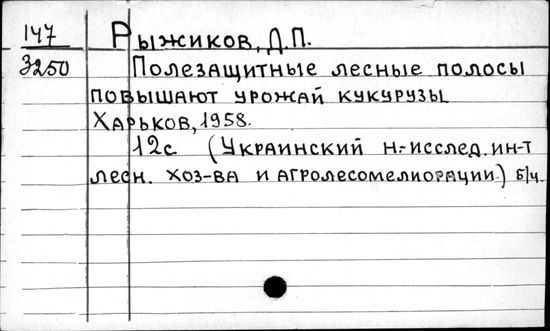 147
3250
Рыжиков, Д.П.
Полезащитные лесные полосы
повышают урожай кукурузы
Харьков, 1958.
12с (Украинский н.-исслед. ин-т
лесн. хоз-ва и агролесомелиорации.) б/ч.